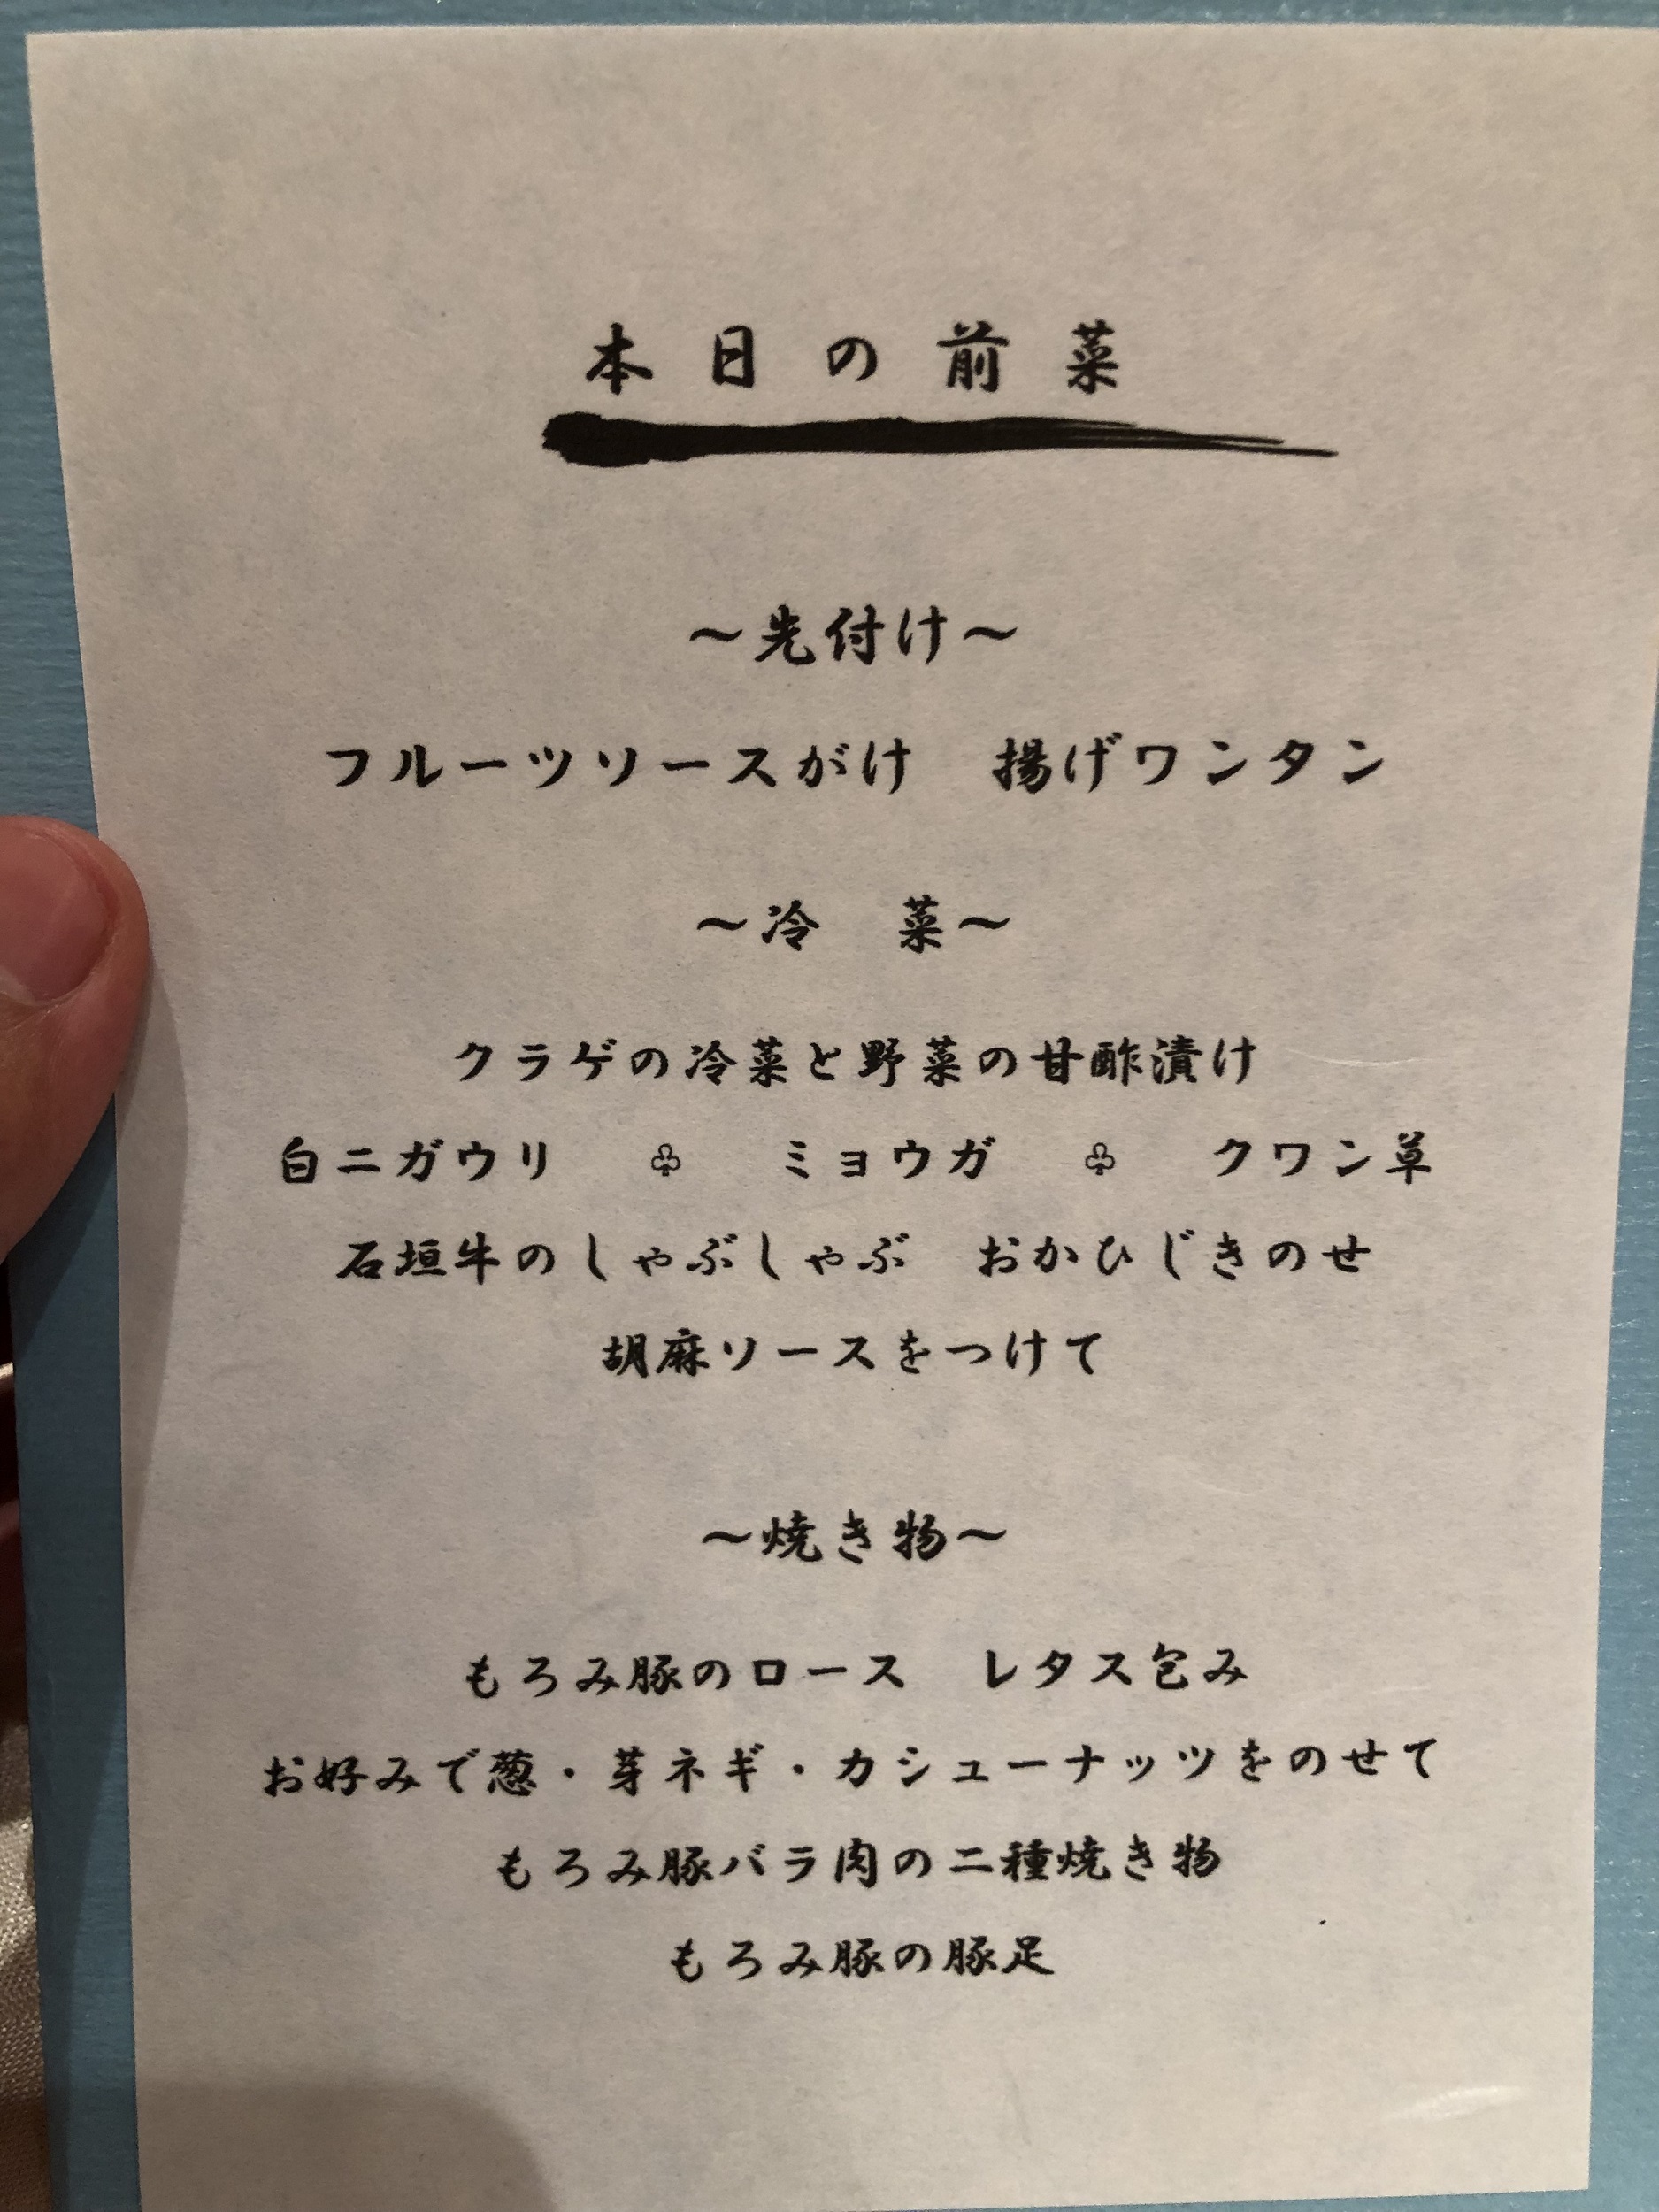 本日の前菜
～先付け～
フルーツソースがけ　揚げワンタン
～冷　菜～
クラゲの冷菜と野菜の甘酢漬け
白ニガウリ　♧　ミョウガ　♧　クワン草
石垣牛のしゃぶしゃぶ　おかひじきのせ
胡麻ソースをつけて
～焼き物～
もろみ豚のロース　レタス包み
お好みで葱・芽ネギ・カシューナッツをのせて
もろみ豚バラ肉の二種焼き物
もろみ豚の豚足